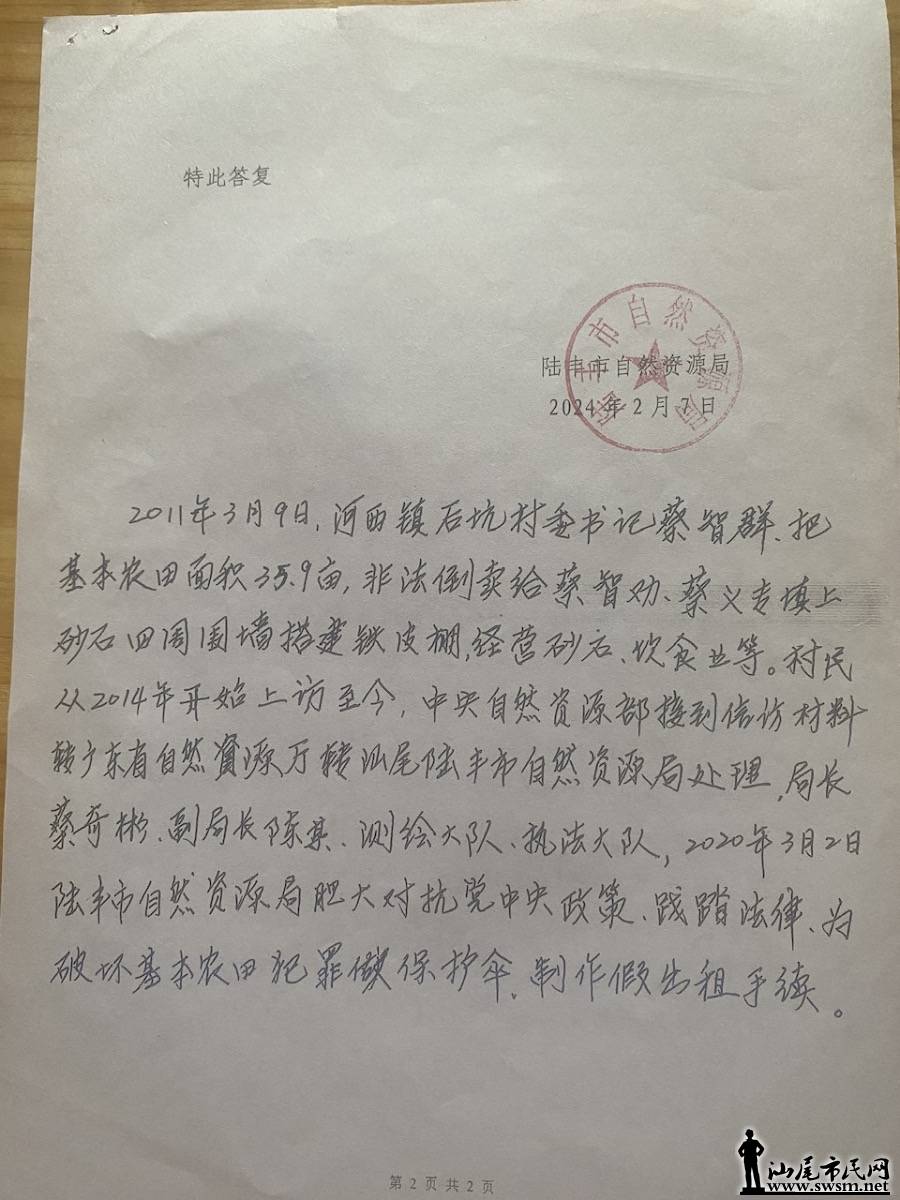 特此答复
陆丰市自然资源局
陆丰市自然资源局
2024年2月7日
2011年3月9日,河西镇石坑村委书记蔡智群、把
基本农田面积35.9亩,非法倒卖给蔡智劝、蔡义专填上
砂石四周围墙搭建铁皮棚,经营砂石、饮食业等。村民
从2014年开始上访至今,中央自然资源部接到信访材料
转广东省自然資源厅转汕尾陆丰市自然资源局处理,局长
蔡奇彬、副局长陈某、测绘大队、执法大队,2020年3月2日
陆丰市自然资源局胆大对抗党中央政策、践踏法律、为
破坏基本农田犯罪做保护伞、制作假出租手续。
第2页共2页
汕尾市民网
www.swsm.net